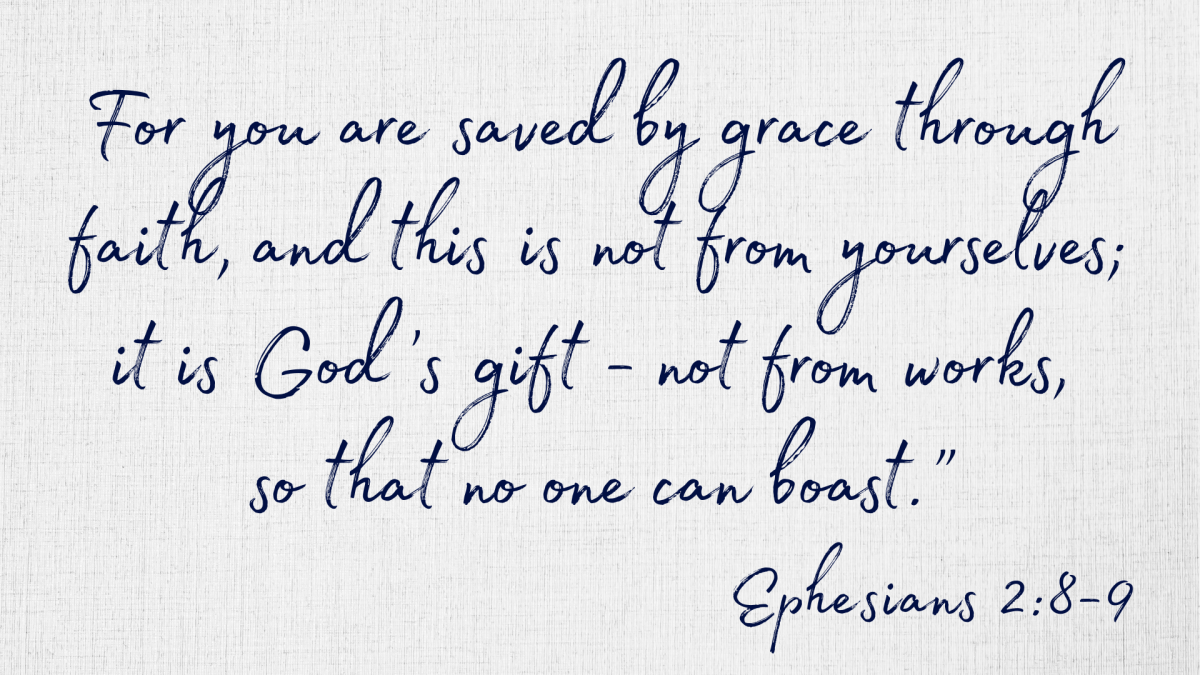 For you are saved by grace through
faith, and this is not from yourselves;
it is God's gift - not from works,
so that no one can boast."
Ephesians 2:8-9